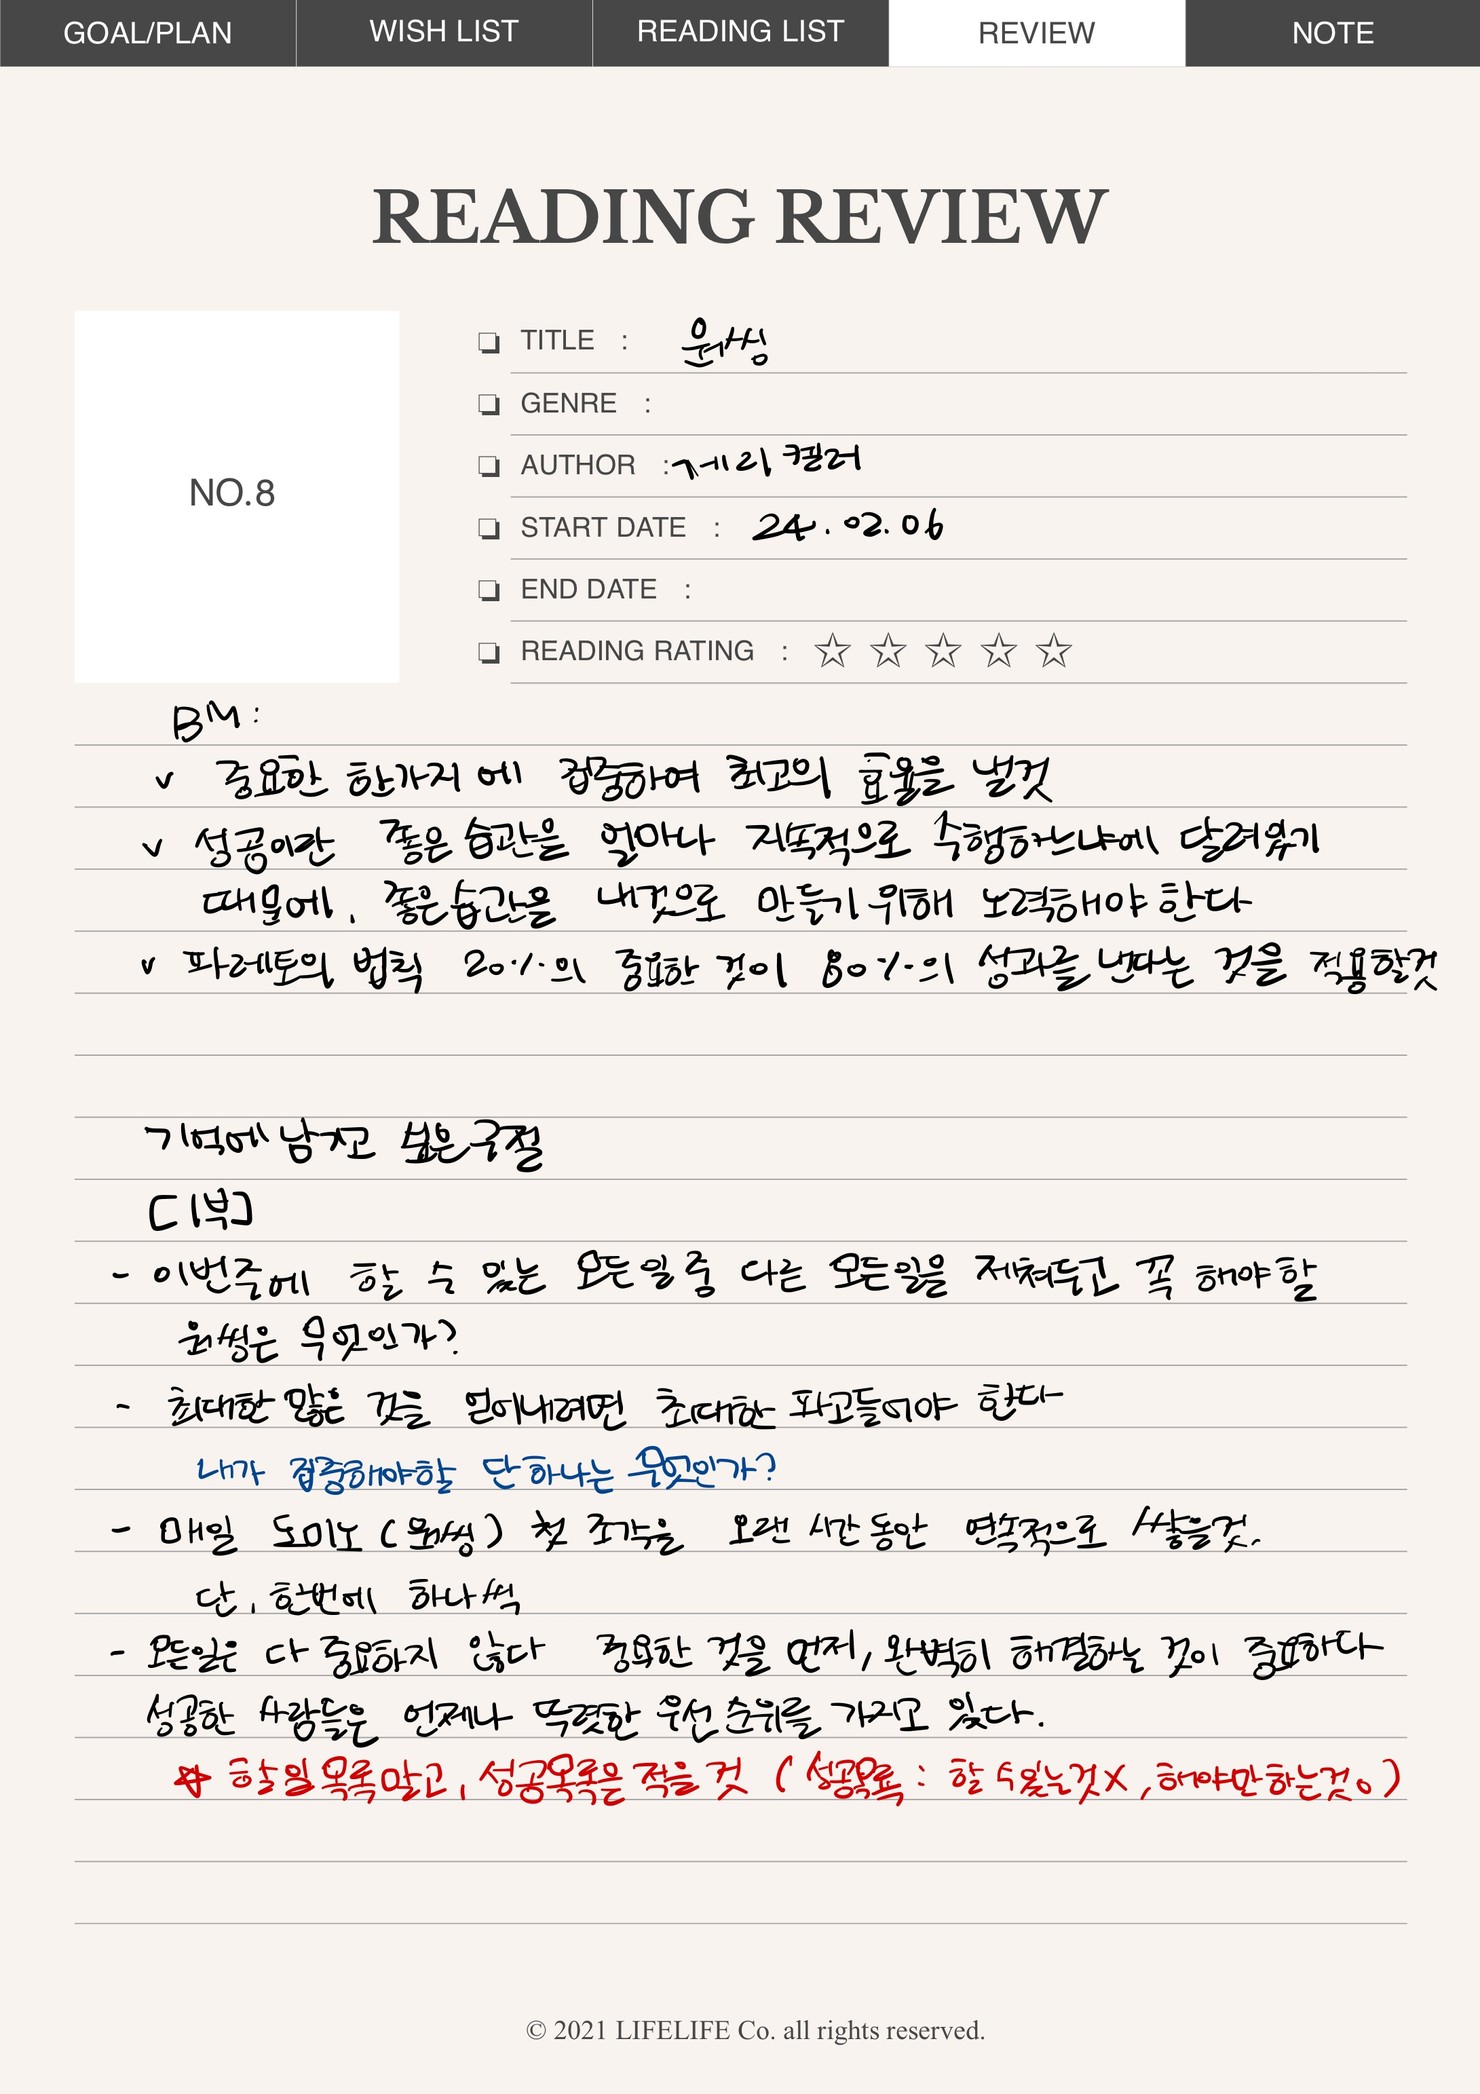 GOAL/PLAN WISH LIST READING LIST REVIEW NOTE
READING REVIEW
NO.8
TITLE : 원씽
GENRE :
AUTHOR : 게리 켈러
START DATE : 24.02.06
END DATE :
READING RATING : ☆ ☆ ☆ ☆ ☆
BM:
v 중요한 한가지에 집중하여 최고의 효율을 낼것
v 성공이란 좋은 습관을 얼마나 지속적으로 수행하느냐에 달려있기
때문에, 좋은습관을 내것으로 만들기 위해 노력해야 한다
v 파레토의 법칙 20%의 중요한 것이 80%의 성과를 낸다는 것을 적용할것
기억에 남기고 싶은구절
[1부]
- 이번주에 할 수 있는 모든일 중 다른 모든일을 제쳐두고 꼭 해야할
원씽은 무엇인가?
- 최대한 많은 것을 얻어내려면 최대한 파고들어야 한다
내가 집중해야할 단 하나는 무엇인가?
- 매일 도미노 (원씽) 첫 조각을 오랜 시간동안 연속적으로 쌓을것.
단, 한번에 하나씩
- 모든일은 다 중요하지 않다 중요한 것을 먼저, 완벽히 해결하는 것이 중요하다
성공한 사람들은 언제나 뚜렷한 우선순위를 가지고 있다.
☆ 할일목록말고, 성공목록은 적을 것 (성공목록 : 할 수있는것X, 해야만하는것o)
© 2021 LIFELIFE Co. all rights reserved.